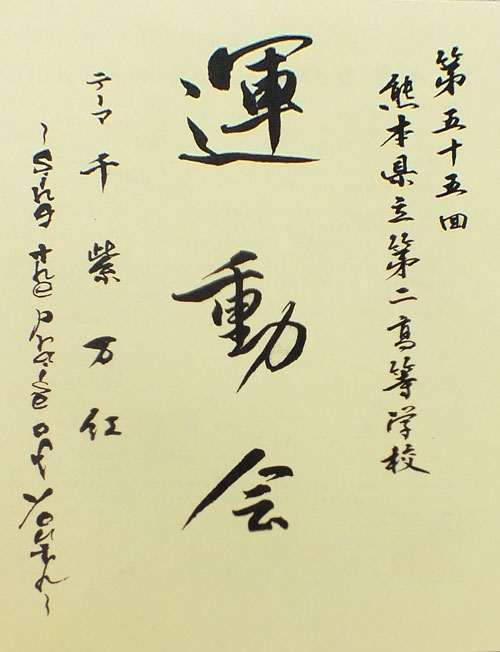 第五十五回
熊本県立第二高等学校
運動会
テーマ 千紫万紅
~Sing the praise of Youth~